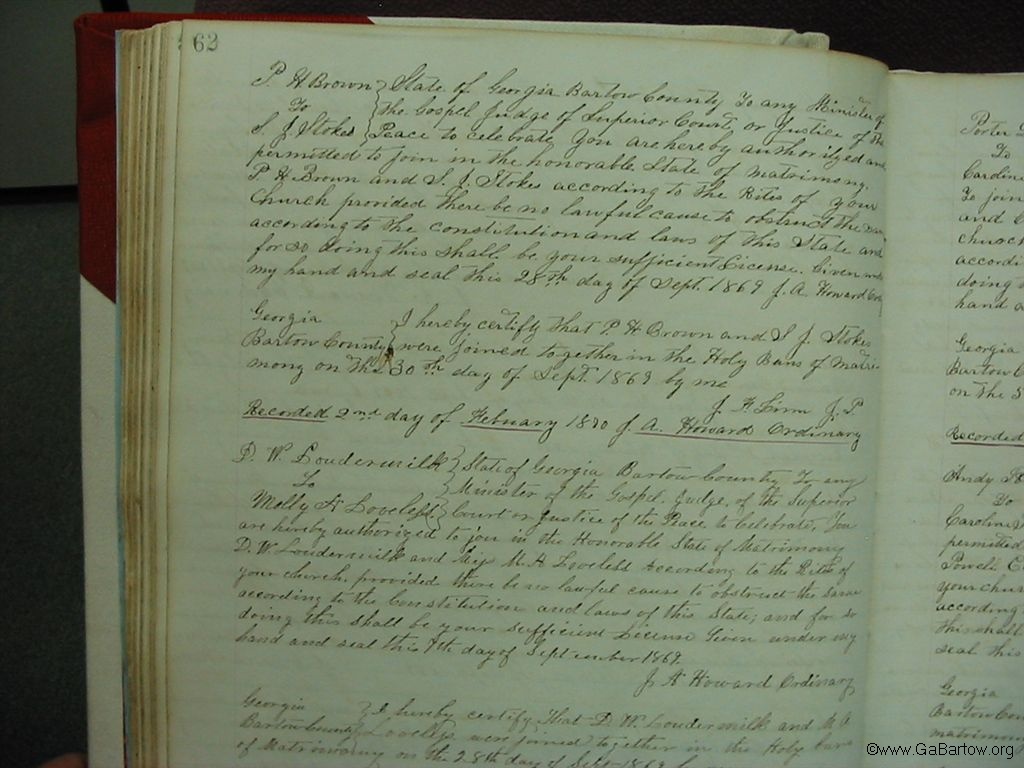 62
P. H Brown } State of Georgia Bartow County To any Minister of
To } the Gospel Judge of Superior Court or Justice of the
S. J. Stokes } Peace to celebrate You are hereby authorized and
permitted to join in the honorable State of Matrimony.
P. H. Brown and S. J. Stokes according to the Rites of your
Church provided there be no lawful cause to obstruct the same
according to the constitution and laws of this State and
for so doing this shall be your sufficient License. Given under
my hand and seal this 28th day of Sept. 1869 J. A. Howard Ord
Georgia } I hereby certify that P H Brown and S J Stokes
Bartow County } were joined together in the Holy Bans of Matri-
mony on the 30th day of Sept. 1869 by me
J. F. J. P
Recorded 2nd day of February 1870 J A. Howard Ordinary
D. W. Loudermilk } State of Georgia Bartow County To any
To } Minister of the Gospel, Judge, of the Superior
Molly A Loveless } Court or Justice of the Peace to Celebrate, You
are hereby authorized to join in the Honorable State of Matrimony
D. W. Loudermilk and Miss M. A Loveless According to the Rites of
your church, provided there be no lawful cause to obstruct the same
according to the Constitution and laws of this State; and for so
doing this shall be your sufficient License Given under my
hand and seal this 9th day of September 1869.
J. A Howard Ordinary
Georgia } I hereby certify That D. W. Loudermilk and M A
Bartow County } Loveless were joined together in the Holy bans
of Matrimony on the 28th day of Sept 1869
Porter
To
Caroline
To join
and
church
accordi
doing
hand a
Georgia
Bartow C
on the
Recorded
Andy
To
Caroline
permitted
Powell
your chur
according
this shall
seal this
Georgia
Bartow Coun
matrimon
©www.GaBartow.org